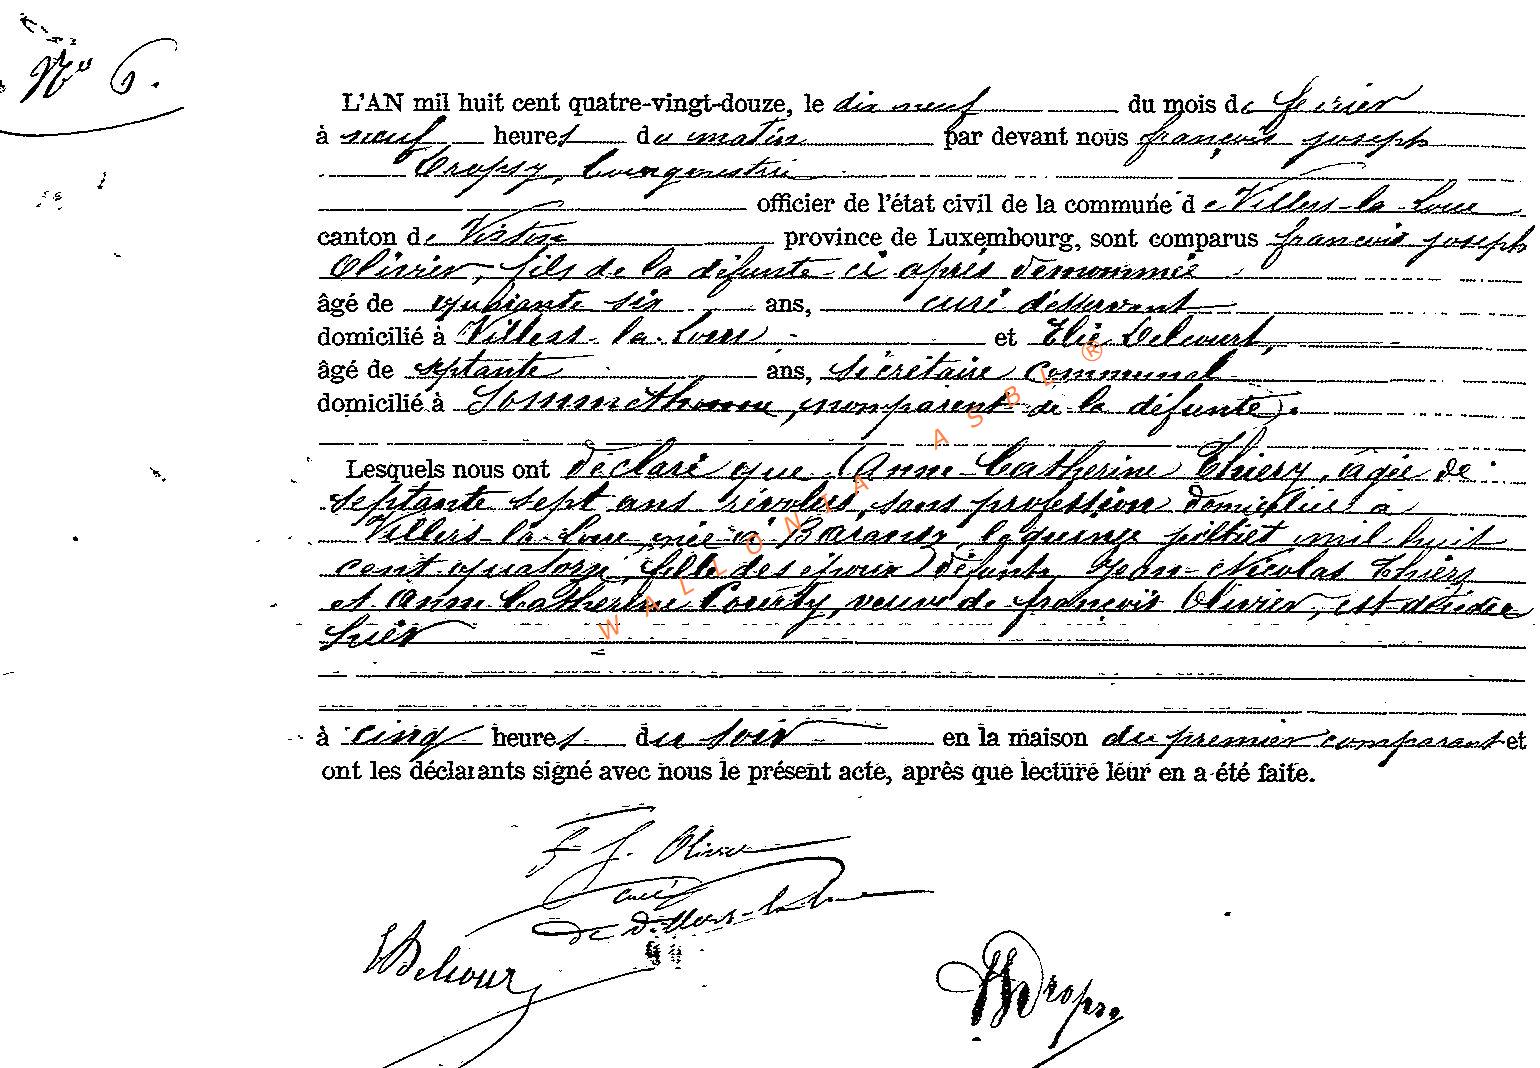 No 6.
L'AN mil huit cent quatre-vingt-douze, le dix neuf du mois de février
à neuf heures du matin par devant nous françois joseph
Dropsy, bourgmestre
officier de l'état civil de la commune de Villers-la-Loue
canton de Virton province de Luxembourg, sont comparus françois joseph
Olivier, fils de la défunte ci après dénommée
âgé de quarante six ans, curé déservant
domicilié à Villers-la-Loue et Elie Delcourt,
âgé de septante ans, sécrétaire communal
domicilié à Sommethonne, nonparent de la défunte.
Lesquels nous ont déclaré que Anne Catherine Thiery, agée de
septante sept ans révolus, sans profession domiciliée à
Villers-la-Loue, née à Baranzy, le quinze juillet mil huit
cent quatorze, fille des époux défunts Jean-Nicolas Thiery
et Anne Catherine Pourty, veuve de françois Olivier, est décédée
hier
à cinq heures du soir en la maison du premier comparant et
ont les déclarants signé avec nous le présent acte, après que lecture leur en a été faite.
F. J. Olivier
curé
de Villers-la-Loue
EDelcourt
Dropsy
WALLONIA ASBL ®